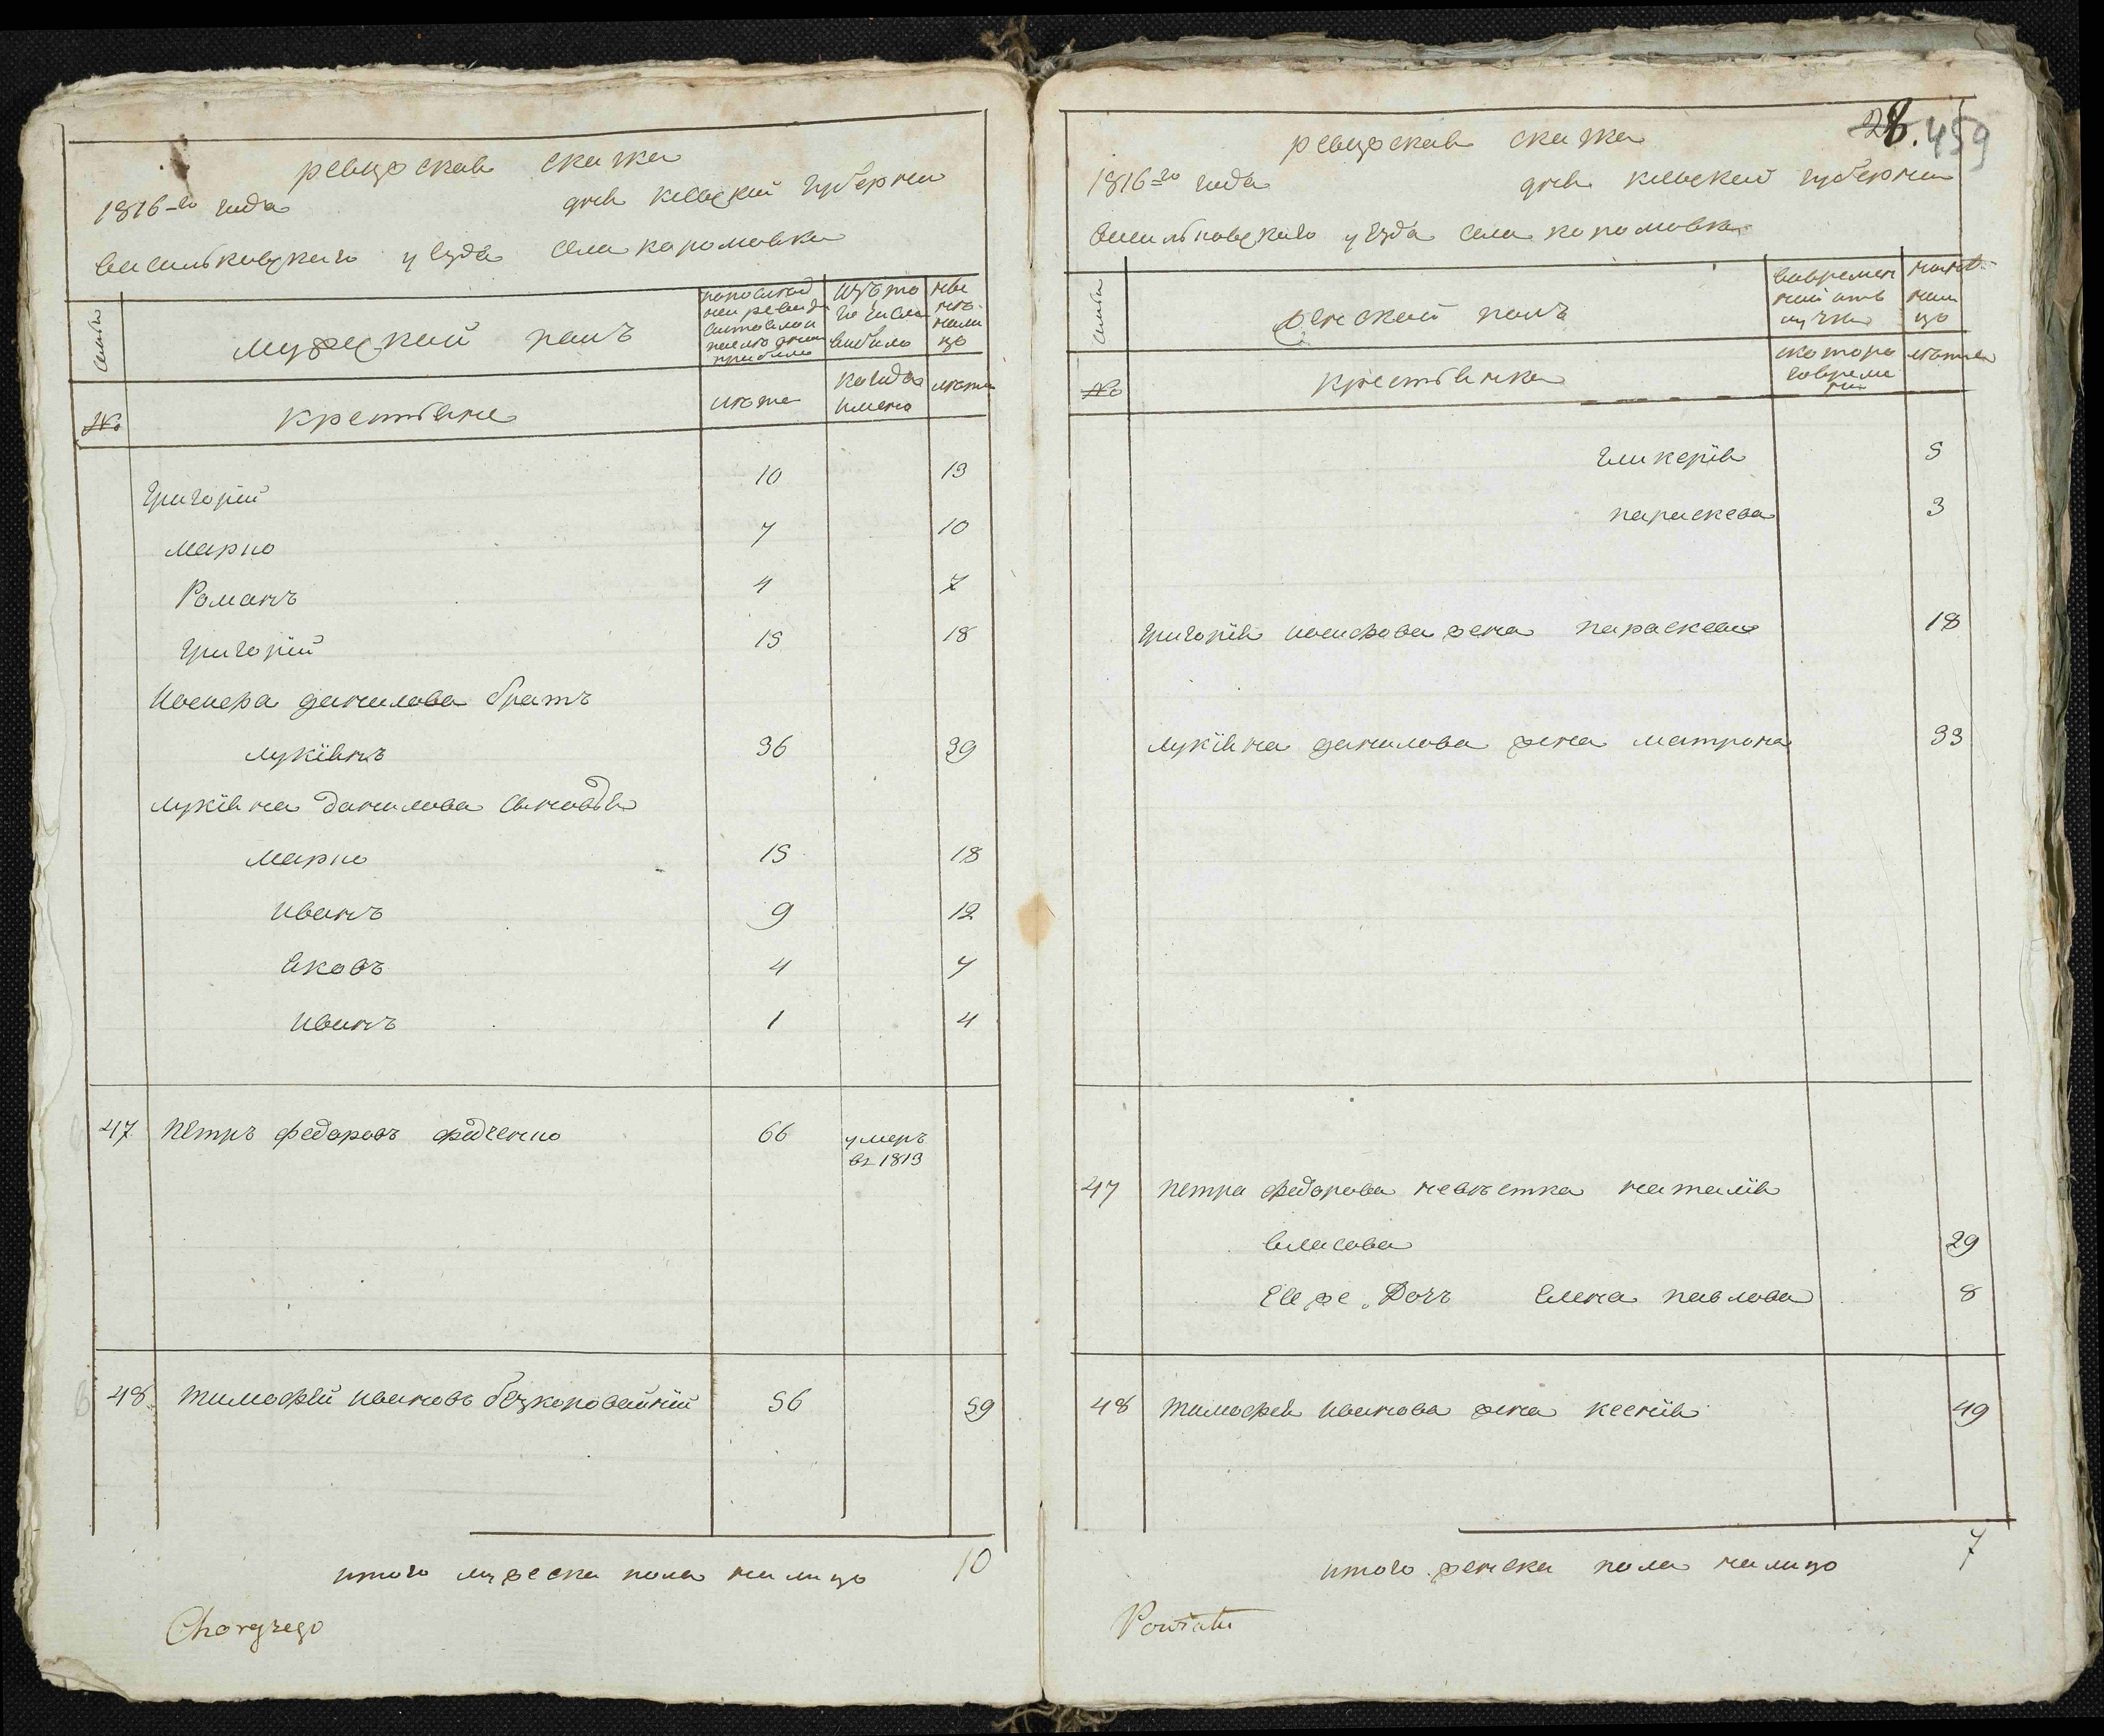 ревизская сказка
1816-го года дня киевской губернии
васильковскаго уезда села паромовки
семьи
мужеский полъ
по последней ревизии состояло и после оной прибыло
изъ того числа выбыло
ныне на лицо
№
крестьяне
лета
когда имено
лета
григорий 10 13
марко 7 10
Романъ 4 7
григорий 15 18
иосифа данилова братъ
лукіянъ 36 39
лукіяна данилова сыновья
марко 15 18
иванъ 9 12
яковъ 4 7
иванъ 1 4
47 петръ федоровъ федченко 66 умеръ въ 1813
48 тимофей ивановъ безкоровайній 56 59
итого мужеска пола на лицо 10
Chorążego
28. 459
ревизская сказка
1816-го года дня киевской губернии
васильковскаго уезда села паромовки
семьи
женский полъ
во временной отлучке
на лицо
№
крестьянки
с котораго времени
лета
гликерія 5
параскева 3
григорія иосифова жена параскева 18
лукіяна данилова жена матрона 33
47 петра федорова невестка наталія
власова 29
Ее же дочъ елена павлова 8
48 тимофея иванова жена ксенія 49
итого женска пола на лицо 7
Powiatu